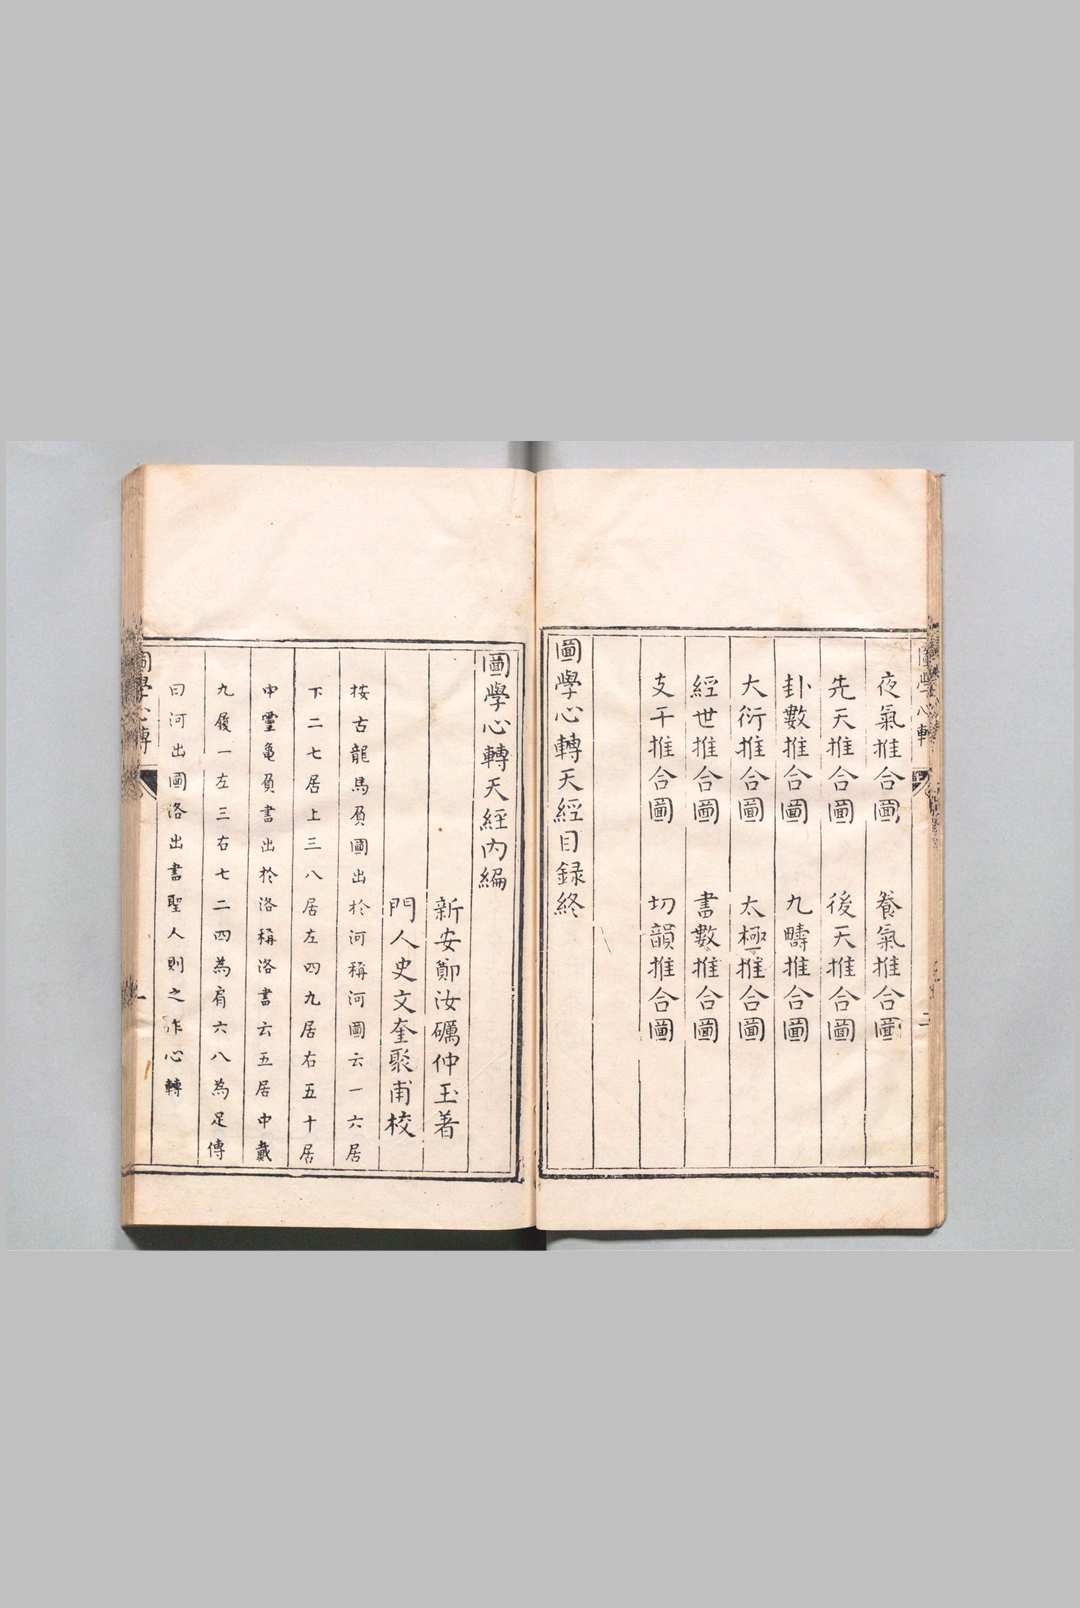 夜氣推合圖　養氣推合圖
先天推合圖　後天推合圖
卦數推合圖　九疇推合圖
大衍推合圖　太極推合圖
經世推合圖　書數推合圖
支干推合圖　切韻推合圖
圖學心轉天經目録終
圖學心轉天經內編
新安鄭汝礪仲玉著
門人史文奎聚甫校
按古龍馬負圖出於河稱河圖云一六居
下二七居上三八居左四九居右五十居
中靈龜負書出於洛稱洛書云五居中戴
九履一左三右七二四為肩六八為足傳
曰河出圖洛出書聖人則之作心轉
圖學心轉
一